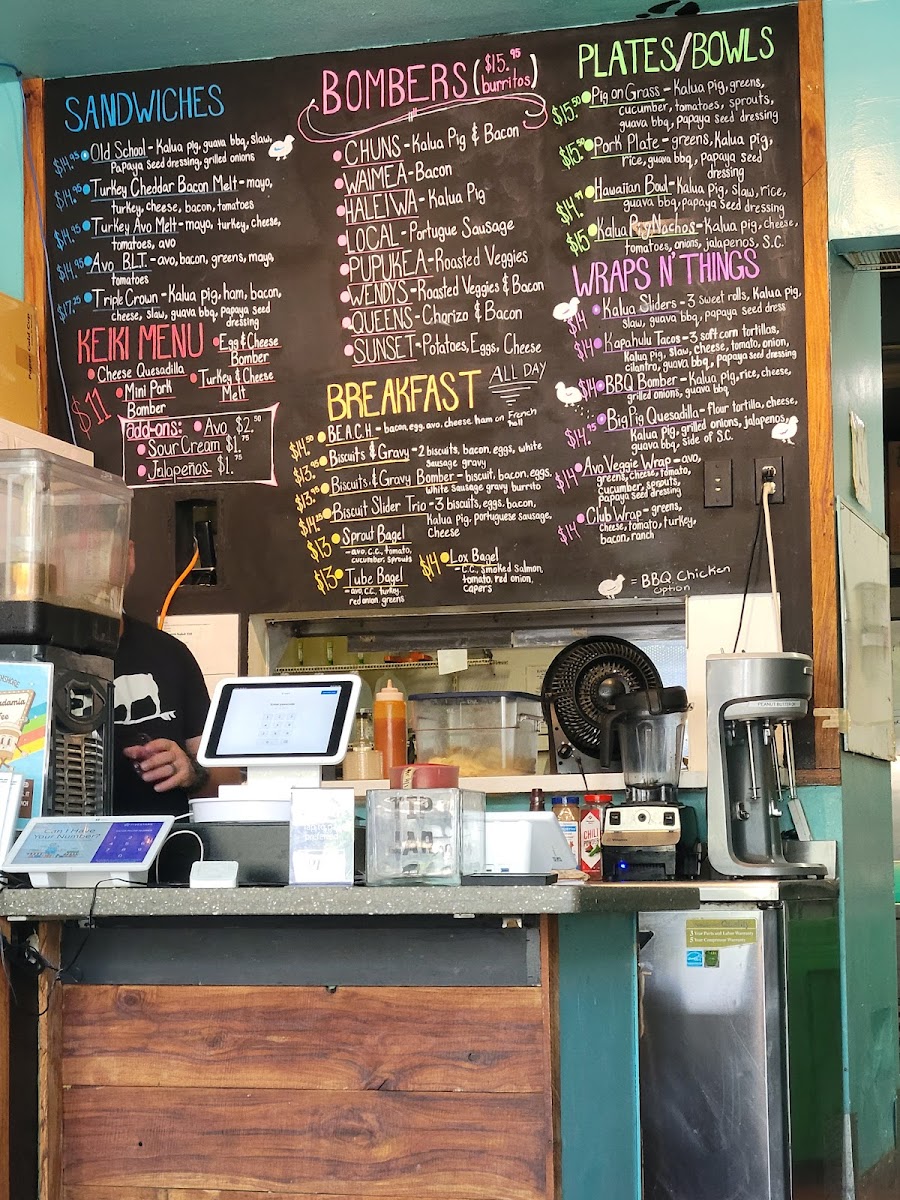 SANDWICHES
$14.95 Old School - Kalua pig, guava bbq, slaw,
Papaya Seed dressing, grilled onions
$14.95 Turkey Cheddar Bacon Melt - mayo,
turkey, cheese, bacon, tomatoes
$14.95 Turkey Avo Melt - mayo, turkey, cheese,
tomatoes, avo
$14.95 Avo B.L.T. - avo, bacon, greens, mayo
tomatoes
$17.25 Triple Crown - Kalua pig, ham, bacon,
cheese, slaw, guava bbq, papaya seed
dressing
KEIKI MENU
$11
Cheese Quesadilla
Mini Pork
Bomber
Egg & Cheese
Bomber
Turkey & Cheese
Melt
add-ons:
Avo $2.50
Sour Cream $1.75
Jalapeños $1.75
BOMBERS ($15.95
burritos)
CHUNS - Kalua Pig & Bacon
WAIMEA - Bacon
HALEIWA - Kalua Pig
LOCAL - Portugue Sausage
PUPUKEA - Roasted Veggies
WENDYS - Roasted Veggies & Bacon
QUEENS - Chorizo & Bacon
SUNSET - Potatoes, Eggs, Cheese
BREAKFAST ALL DAY
$14.50 B.E.A.C.H. - bacon, egg, avo, cheese, ham on French
$13.95 Biscuits & Gravy - 2 biscuits, bacon, eggs, white
Sausage gravy
$13.95 Biscuits & Gravy Bomber - biscuit, bacon, eggs,
white Sausage gravy burrito
$14.25 Biscuit Slider Trio - 3 biscuits, eggs, bacon,
Kalua pig, portuguese sausage,
Cheese
$13 Sprout Bagel
- avo, c.c., tomato,
cucumber, sprouts
$13 Tube Bagel
- avo, c.c., turkey,
red onion, greens
$14 Lox Bagel
- C.C., Smoked Salmon,
tomato, red onion,
capers
PLATES/BOWLS
$15.50 Pig on Grass - Kalua pig, greens,
cucumber, tomatoes, sprouts,
guava bbq, papaya Seed dressing
$15.50 Pork Plate - greens, Kalua pig,
rice, guava bbq, papaya seed
dressing
Hawaiian Bowl - Kalua pig, slaw, rice,
guava bbq, papaya seed dressing
$15 Kalua Pig Nachos - Kalua pig, cheese,
tomatoes, onions, jalapenos, S.C.
WRAPS N' THINGS
$14 Kalua Sliders - 3 sweet rolls, Kalua pig,
slaw, guava bbq, papaya seed dress
$14 Kapahulu Tacos - 3 soft corn tortillas,
Kalua pig, slaw, cheese, tomato, onion,
cilantro, guava bbq, papaya seed dressing
$14 BBQ Bomber - Kalua pig, rice, cheese,
grilled onions, guava bbq
$14.95 Big Pig Quesadilla - flour tortilla, cheese,
Kalua pig, grilled onions, jalapenos,
guava bbq, side of S.C.
$14 Avo Veggie Wrap - avo,
greens, cheese, tomato,
cucumber, sprouts,
Papaya seed dressing
$14 Club Wrap - greens,
cheese, tomato, turkey,
bacon, ranch
= BBQ Chicken
Option
PEANUT BUTTER
Can I Have
Your Number?
TIP
JAR
CHILI